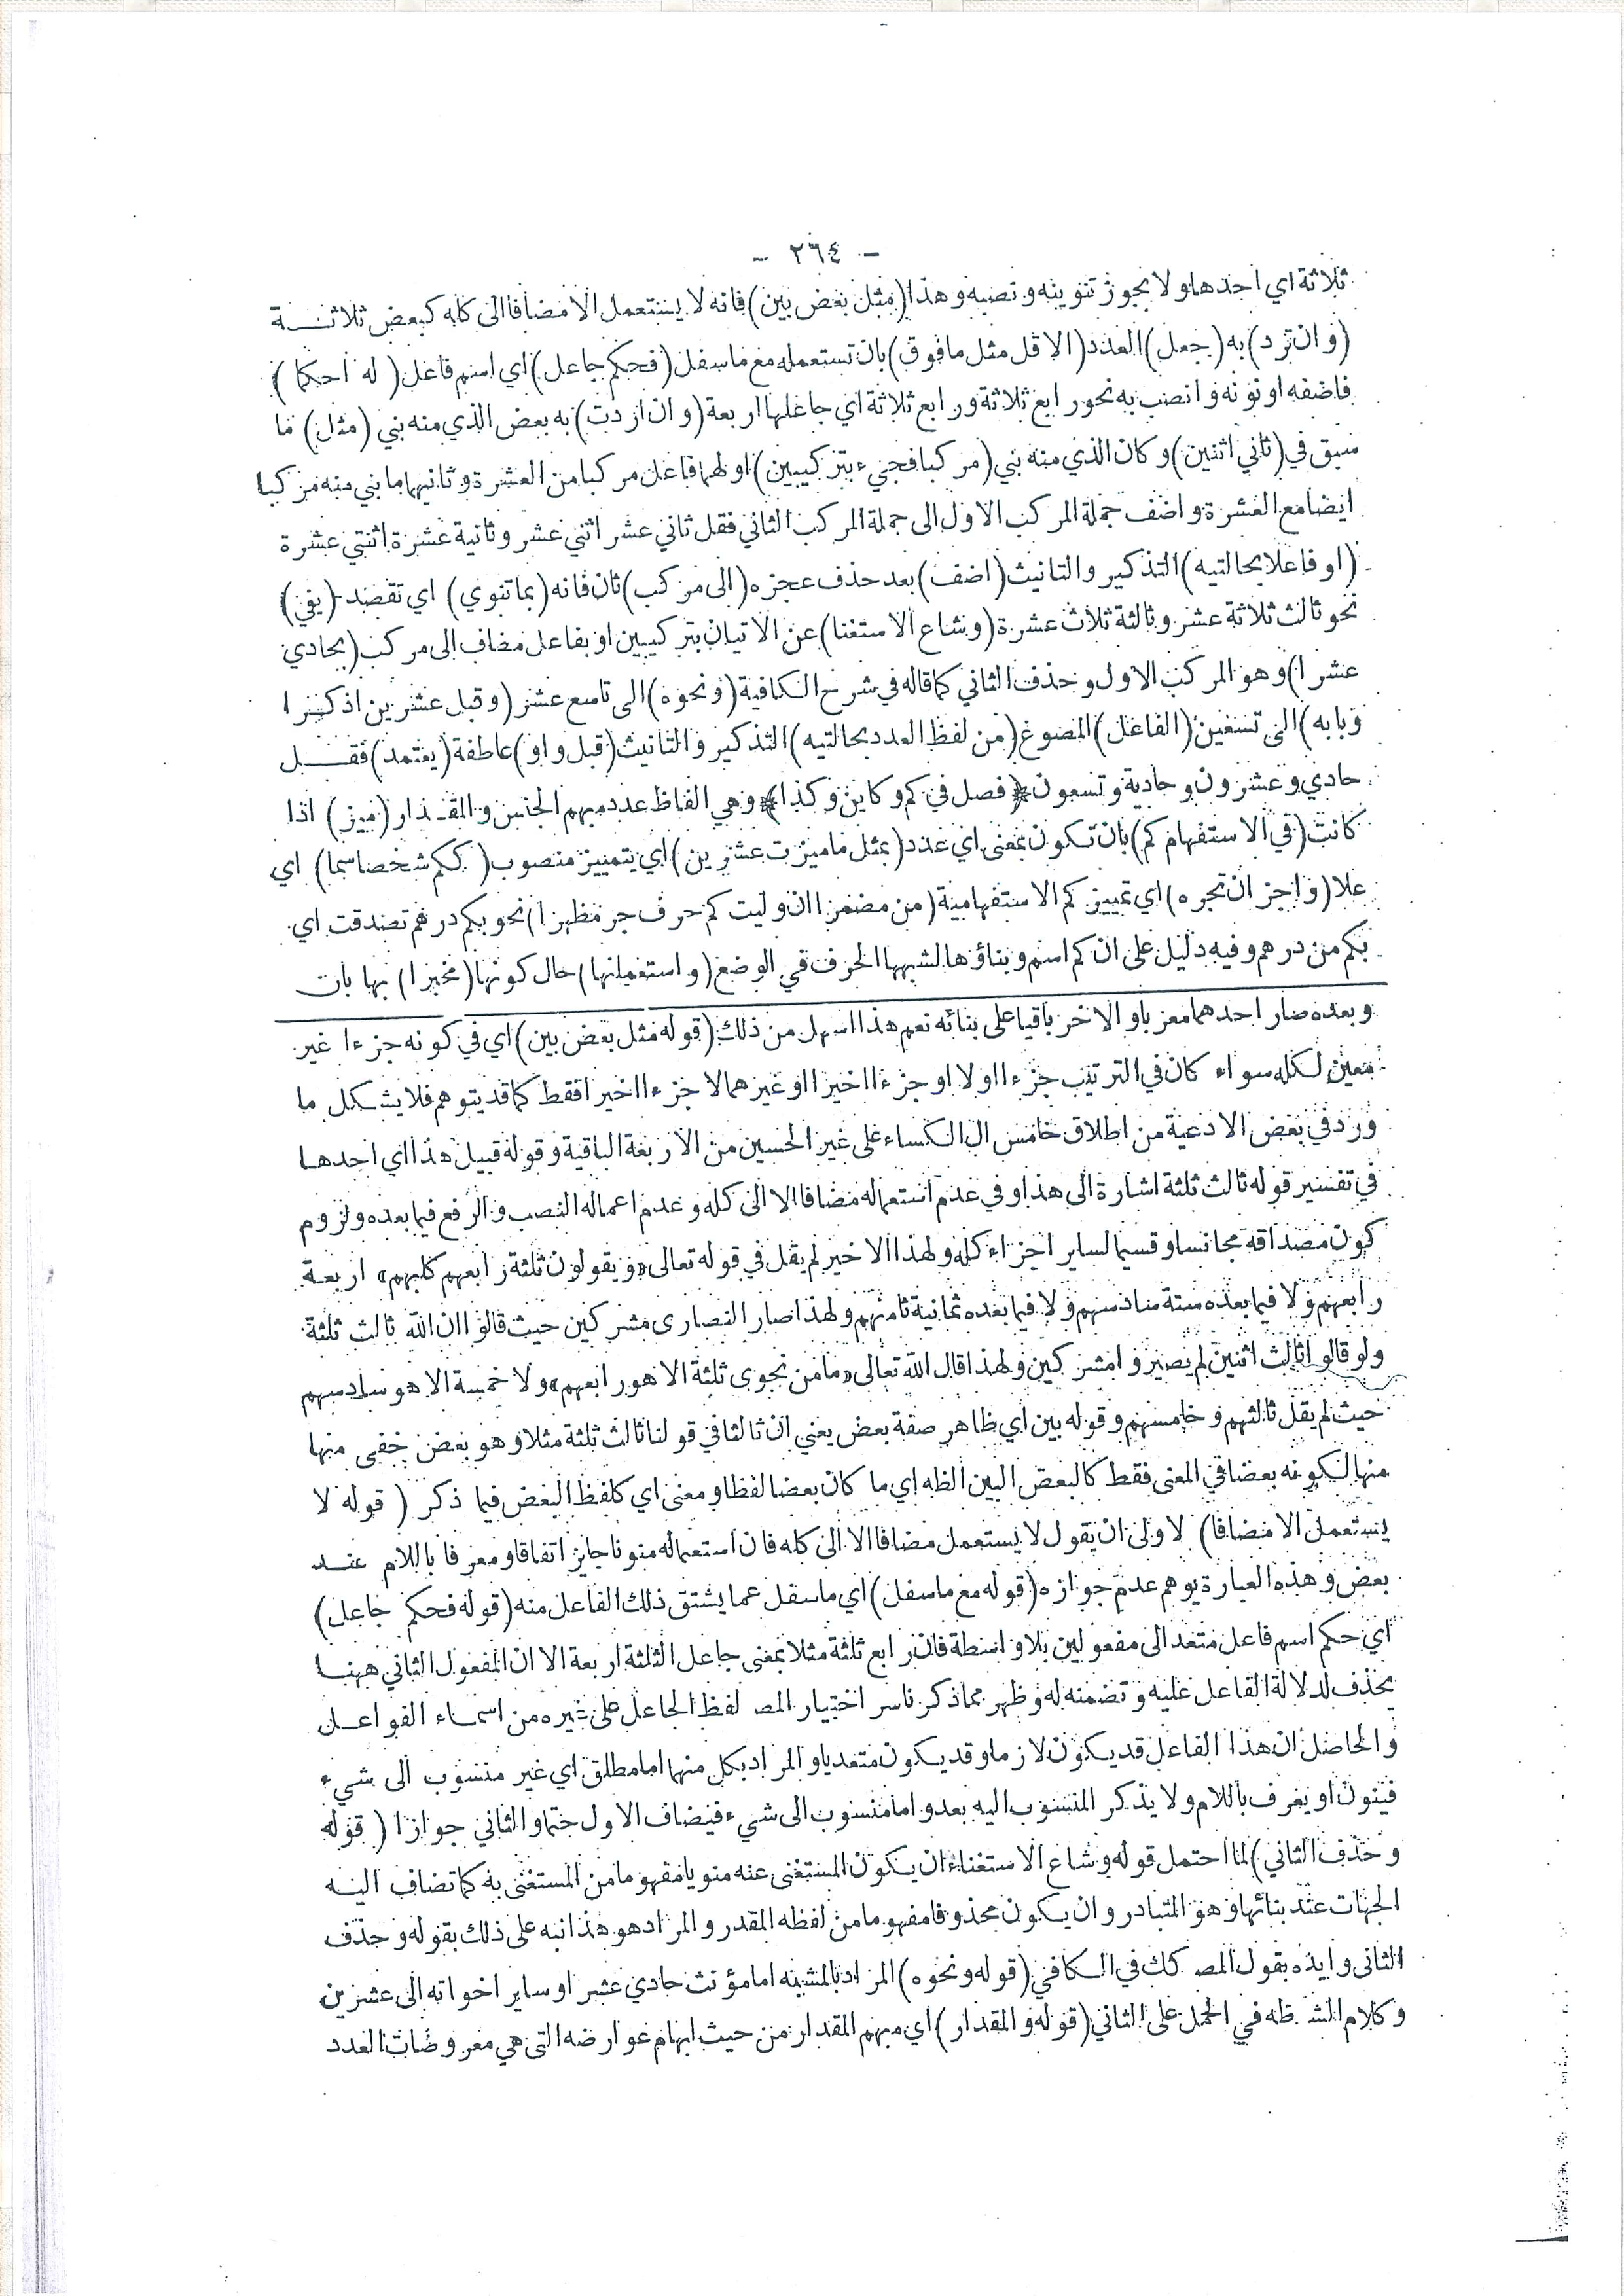 - ٢٦٤ -
ثلاثة اي احدها ولا يجوز تنوينه ونصبه وهذا (مثل بعض بين) فانه لا يستعمل الا مضافا الى كله كبعض ثلاثة
(وان ترد) به (جعل) العدد (الاقل مثل ما فوق) بان تستعمله مع ما سفل (فحكم جاعل) اي اسم فاعل (له احكما)
فاضفه او نونه وانصب به نحو رابع ثلاثة ورابع ثلاثة اي جاعلها اربعة (وان اردت) به بعض الذي منه بني (مثل) ما
سبق في (ثاني اثنين) وكان الذي منه بني (مركبا فجيء بتركيبين) اولهما فاعل مركبا من العشرة وثانيهما ما بني منه مركبا
ايضا مع العشرة واضف جملة المركب الاول الى جملة المركب الثاني فقل ثاني عشر اثني عشر وثانية عشرة اثنتي عشرة
(او فاعلا بحالتيه) التذكير والتانيث (اضف) بعد حذف عجزه (الى مركب) ثان فانه (بما تنوي) اي تقصد (يفي)
نحو ثالث ثلاثة عشر وثالثة ثلاث عشرة (وشاع الاستغنا) عن الاتيان بتركيبين او بفاعل مضاف الى مركب (بحادي
عشرا) وهو المركب الاول وحذف الثاني كما قاله في شرح الكافية (ونحوه) الى تاسع عشر (وقبل عشرين اذكرا
وبابه) الى تسعين (الفاعل) المصوغ (من لفظ العدد بحالتيه) التذكير والتانيث (قبل واو) عاطفة (يعتمد) فقل
حادي وعشرون وحادية وتسعون ﴿فصل في كم وكاين وكذا﴾ وهي الفاظ عدد مبهم الجنس والمقدار (ميز) اذا
كانت (في الاستفهام كم) بان تكون بمعنى اي عدد (بمثل ما ميزت عشرين) اي بتمييز منصوب (ككم شخصا سما) اي
علا (واجز ان تجره) اي تمييز كم الاستفهامية (من مضمرا ان وليت كم حرف جر مظهرا) نحو بكم درهم تصدقت اي
بكم من درهم وفيه دليل على ان كم اسم وبناؤها لشبهها الحرف في الوضع (واستعملنها) حال كونها (مخبرا) بها بان
وبعده صار احدهما معربا والاخر باقيا على بنائه نعم هذا اسهل من ذلك (قوله مثل بعض بين) اي في كونه جزءا غير
معين لكله سواء كان في الترتيب جزءا اولا او جزءا اخيرا او غيرهما لا جزءا اخيرا فقط كما قد يتوهم فلا يشكل ما
ورد في بعض الادعية من اطلاق خامس ال الكساء على غير الحسين من الاربعة الباقية وقوله قبيل هذا اي احدها
في تفسير قوله ثالث ثلثة اشارة الى هذا وفي عدم استعماله مضافا الا الى كله وعدم اعماله النصب والرفع فيما بعده ولزوم
كون مصداقه مجانسا وقسيما لساير اجزاء كله ولهذا الاخير لم يقل في قوله تعالى «ويقولون ثلثة رابعهم كلبهم» اربعة
رابعهم ولا فيما بعده ستة سادسهم ولا فيما بعده ثمانية ثامنهم ولهذا صار النصارى مشركين حيث قالوا ان الله ثالث ثلثة
ولو قالوا ثالث اثنين لم يصيروا مشركين ولهذا قال الله تعالى «ما من نجوى ثلثة الا هو رابعهم» ولا خمسة الا هو سادسهم
حيث لم يقل ثالثهم وخامسهم وقوله بين اي ظاهر صفة بعض يعني ان ثالثا في قولنا ثالث ثلثة مثلا وهو بعض خفى منها
منها لكونه بعضا في المعنى فقط كالبعض البين الظه اي ما كان بعضا لفظا ومعنى اي كلفظ البعض فيما ذكر (قوله لا
يستعمل الا مضافا) لاولى ان يقول لا يستعمل مضافا الا الى كله فان استعماله منونا جايز اتفاقا ومعرفا باللام عند
بعض وهذه العبارة يوهم عدم جوازه (قوله مع ما سفل) اي ما سفل عما يشتق ذلك الفاعل منه (قوله فحكم جاعل)
اي حكم اسم فاعل متعد الى مفعولين بلا واسطة فان رابع ثلثة مثلا بمعنى جاعل الثلثة اربعة الا ان المفعول الثاني ههنا
يحذف لدلالة الفاعل عليه وتضمنه له وظهر مما ذكرنا سر اختيار المص لفظ الجاعل على غيره من اسماء الفواعل
والحاصل ان هذا الفاعل قد يكون لازما وقد يكون متعديا والمراد بكل منهما اما مطلق اي غير منسوب الى شيء
فينون او يعرف باللام ولا يذكر المنسوب اليه بعد واما منسوب الى شيء فيضاف الاول حتما والثاني جوازا (قوله
وحذف الثاني) لما احتمل قوله وشاع الاستغناء ان يكون المستغنى عنه منويا مفهوما من المستغنى به كما تضاف اليه
الجهات عند بنائها وهو المتبادر وان يكون محذوفا مفهوما من لفظه المقدر والمراد هو هذا نبه على ذلك بقوله وحذف
الثانى وايده بقول المص كك في الكافي (قوله ونحوه) المراد بالمشبه اما مؤنث حادي عشر او ساير اخواته الى عشرين
وكلام الش ظه في الحمل على الثاني (قوله والمقدار) اي مبهم المقدار من حيث ابهام عوارضه التى هي معروضات العدد